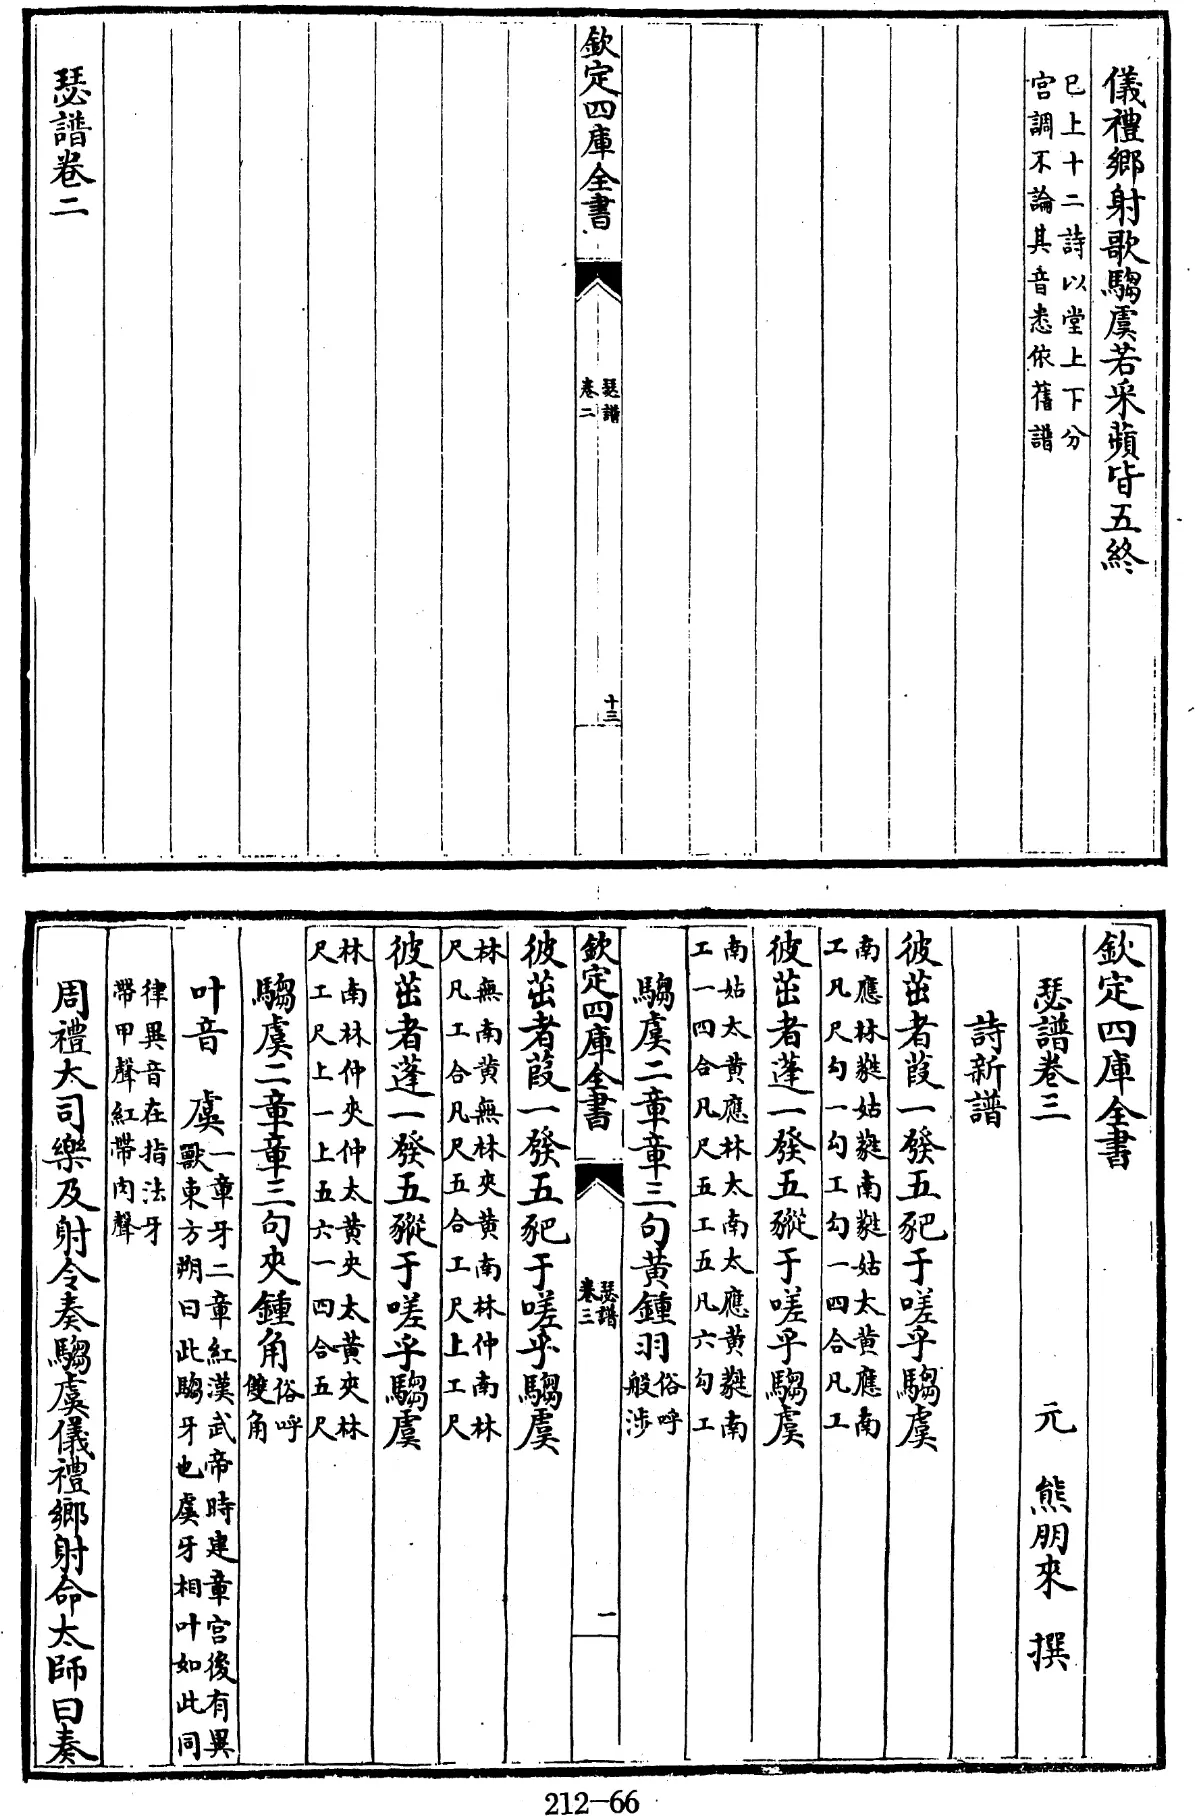 儀禮鄉射歌騶虞若采蘋皆五終
已上十二詩以堂上下分
宫調不論其音悉依舊譜
欽定四庫全書
瑟譜
卷二
十三
瑟譜卷二
欽定四庫全書
瑟譜卷三
元 熊朋來 撰
詩新譜
彼茁者葭一發五豝于嗟乎騶虞
南應林蕤姑蕤南蕤姑太黄應南
工凡尺勾一勾工勾一四合凡工
彼茁者蓬一發五豵于嗟乎騶虞
南姑太黄應林太南太應黄蕤南
工一四合凡尺五工五凡六勾工
騶虞二章章三句黄鍾羽俗呼般涉
欽定四庫全書
瑟譜
卷三
一
彼茁者葭一發五豝于嗟乎騶虞
林無南黄無林夾黄南林仲南林
尺凡工合凡尺五合工尺上工尺
彼茁者蓬一發五豵于嗟乎騶虞
林南林仲夾仲太黄夾太黄夾林
尺工尺上一上五六一四合五尺
騶虞二章章三句夾鍾角俗呼雙角
叶音 虞一章牙二章紅漢武帝時建章宫後有異
獸東方朔曰此騶牙也虞牙相叶如此同
律異音在指法牙
帶甲聲紅帶肉聲
周禮大司樂及射令奏騶虞儀禮鄉射命太師曰奏
212-66